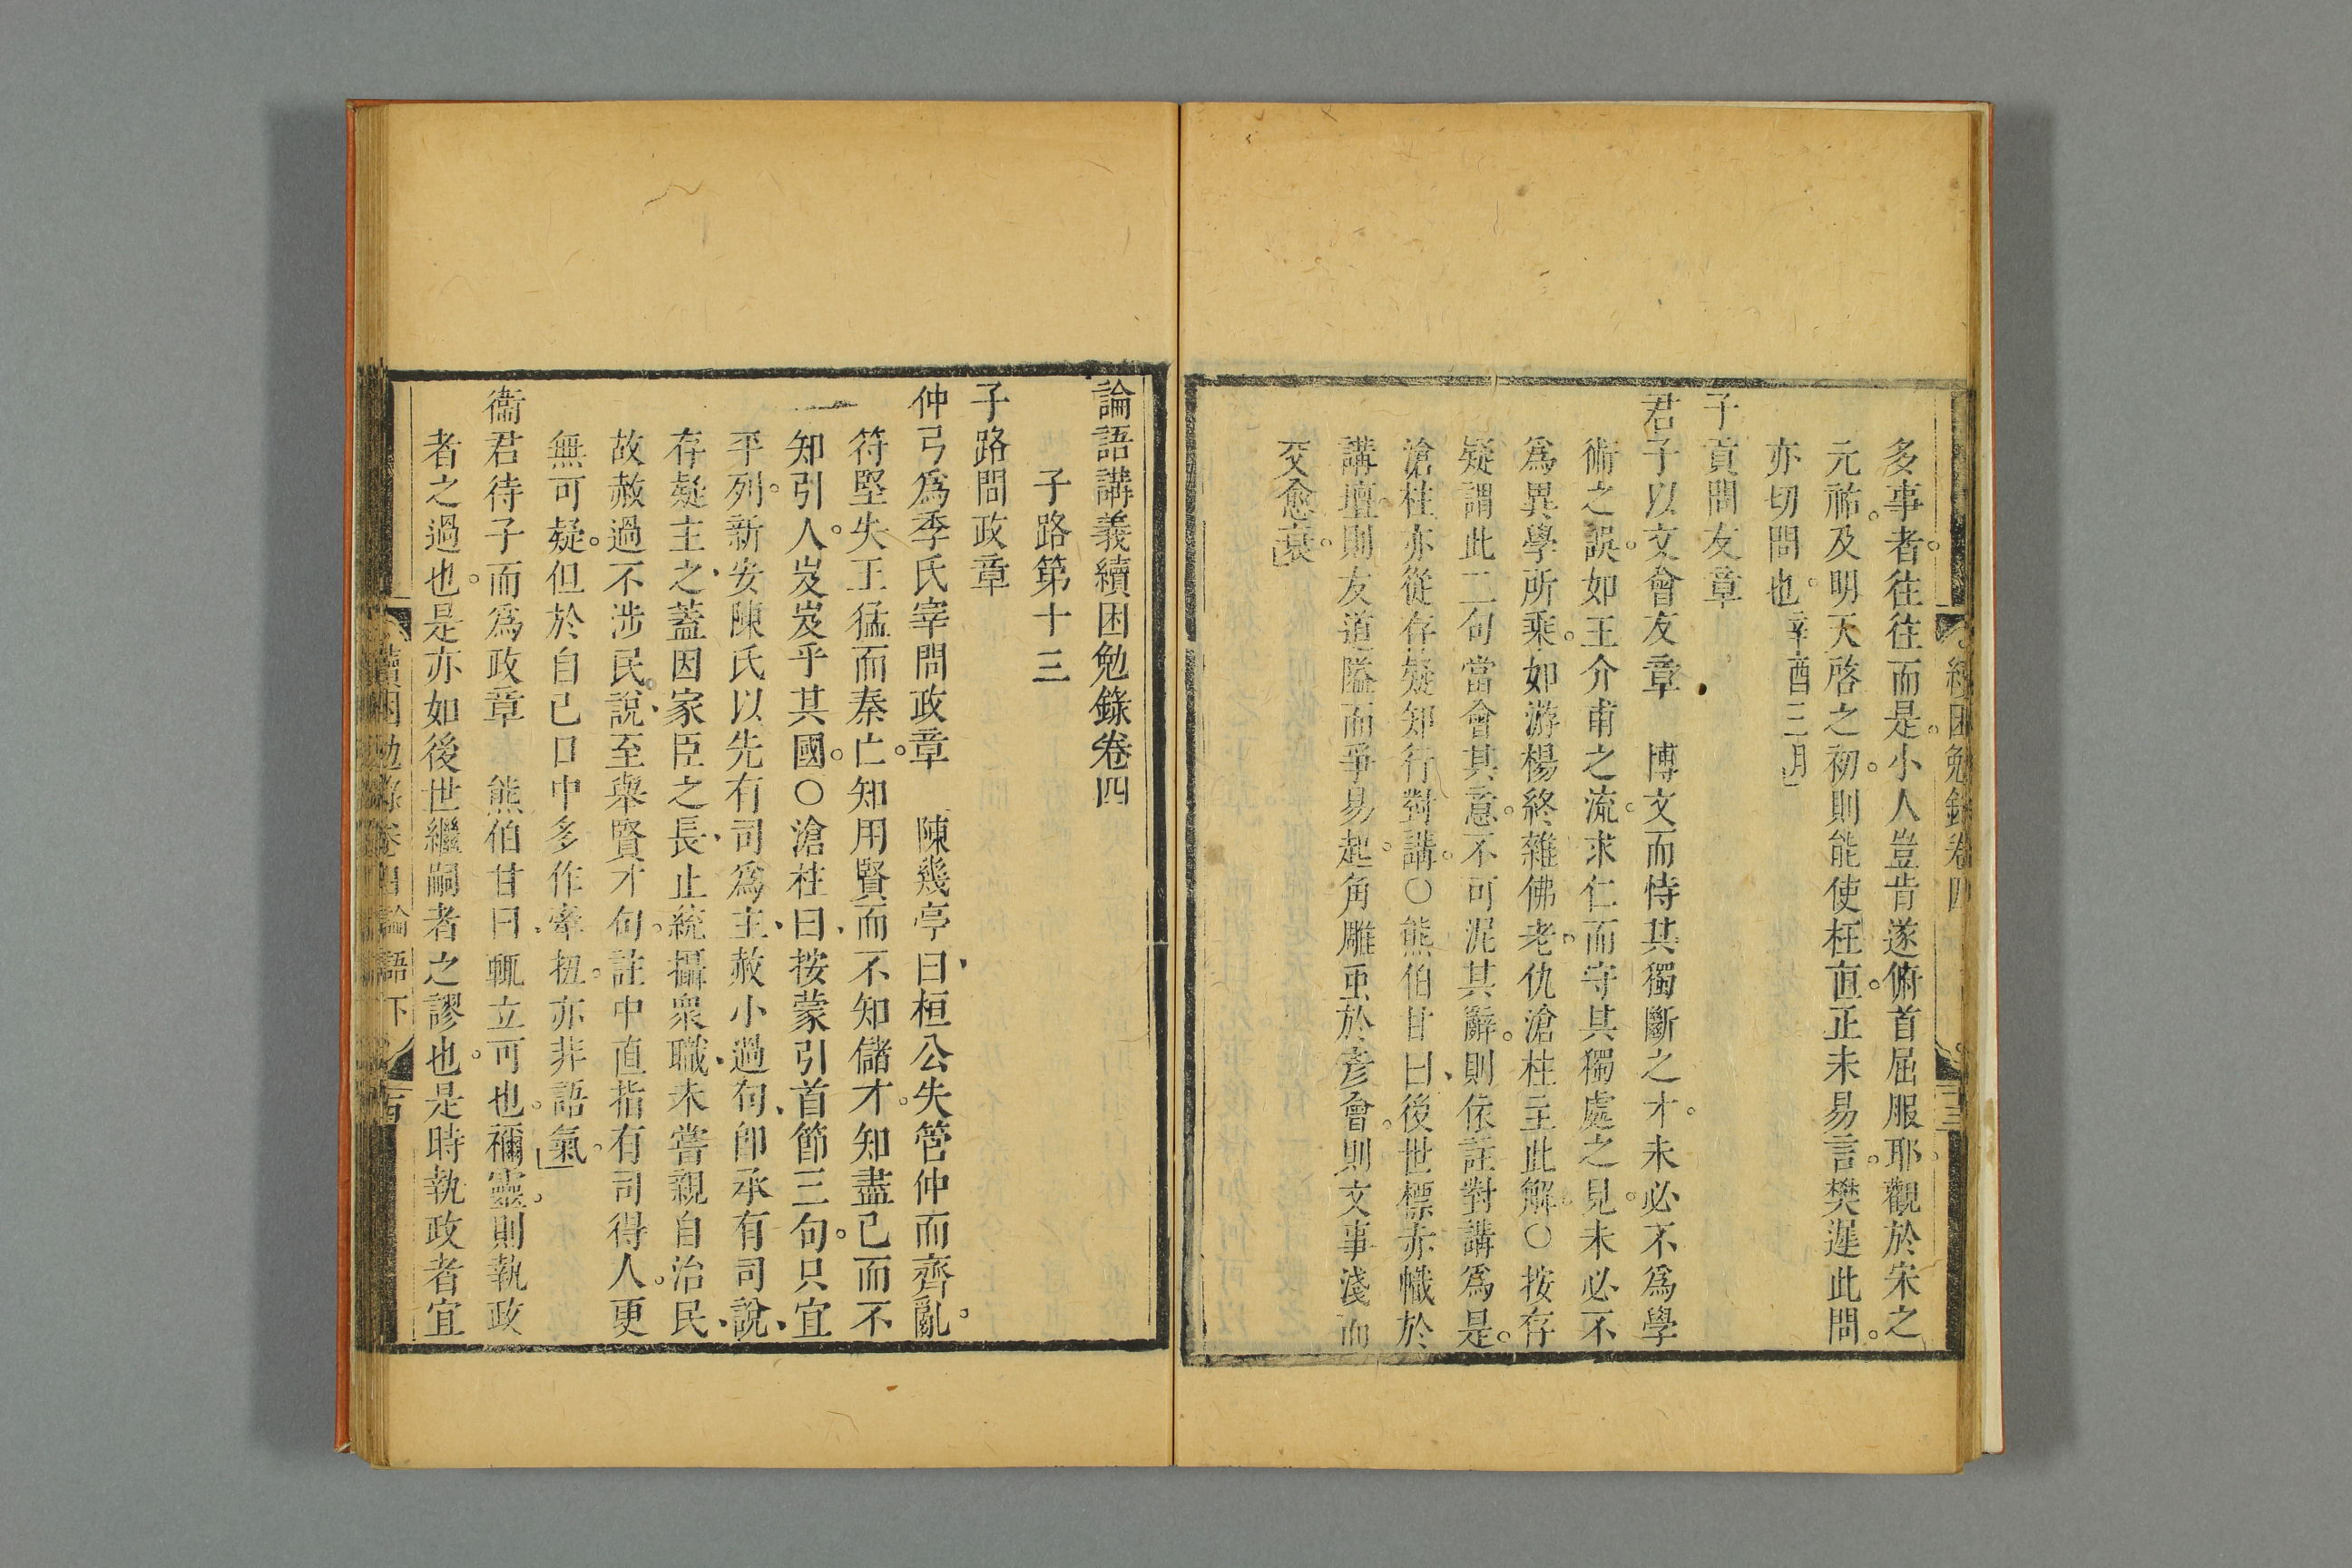 多事者往往而是小人豈肯遂俯首屈服耶觀於宋之
元祐及明天啓之初則能使枉直正未易言樊遲此問
亦切問也辛酉三月
子貢問友章
君子以文會友章　博文而恃其獨斷之才未必不爲學
術之誤如王介甫之流求仁而守其獨處之見未必不
爲異學所乘如游楊終雜佛老仇滄柱主此解○按存
疑謂此二句當會其意不可泥其辭則依註對講爲是
滄柱亦從存疑知行對講○熊伯甘曰後世標赤幟於
講壇則友道隘而爭易起角雕虫於彥會則文事淺而
交愈衰
論語講義續困勉錄卷四
子路第十三
子路問政章
仲弓爲季氏宰問政章　陳幾亭曰桓公失管仲而齊亂
符堅失王猛而秦亡知用賢而不知儲才知盡已而不
知引人岌岌乎其國○滄柱曰按蒙引首節三句只宜
平列新安陳氏以先有司爲主赦小過句卽承有司說
存疑主之蓋因家臣之長止統攝衆職未嘗親自治民
故赦過不涉民說至舉賢才句註中直指有司得人更
無可疑但於自己口中多作牽扭亦非語氣
衞君待子而爲政章　熊伯甘曰輒立可也禰靈則執政
者之過也是亦如後世繼嗣者之謬也是時執政者宜
續困勉錄卷四論語下